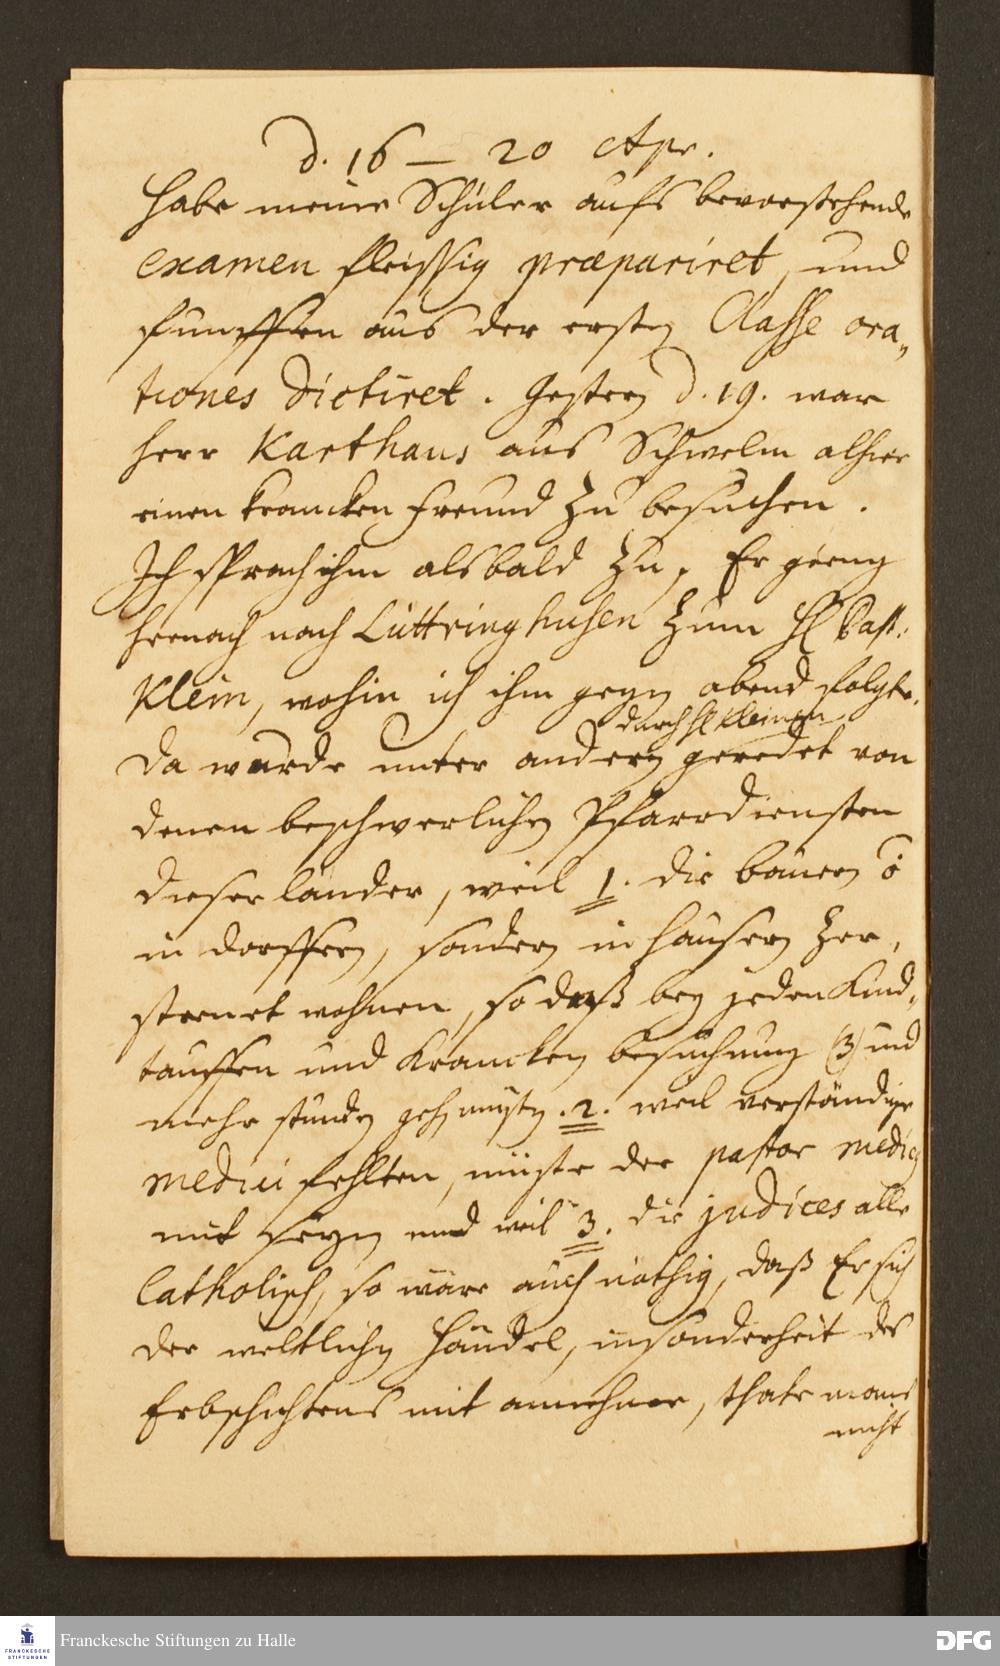 d. 16 – 20 Apr.
Habe meine Schüler aufs bevorstehende
examen fleissig præpariret, und
funffen aus der ersten Classe ora„
tiones dictiret. Gestern d. 19. war
Herr Karthaus aus Schwelm alhier
einen krancken Freund zu besuchen.
Ich sprach ihm alsbald zu, Er gieng
hernach nach Lüttringhusen zum H. Past.
Klein, wohin ich ihm gegen abend folgte.
durch H. Kleinen
Da wurde unter andern geredet von
denen beschwerlichen Pfarrdiensten
dieser länder, weil 1. die bauern
in dorffern, sondern in häusern zer„
streuet wohnen, so daß bey jeden Kind„
tauffen und Krancken besuchung (3) und
mehr stunden gehen müsten. 2. weil verständige
medici fehlten, müste der pastor medicus
mit seyn und weil 3. die judices alle
Catholisch, so wäre auch nöthig, daß Er sich
der weltlichen Händel, insonderheit des
Erbschichtens mit annehme, thäte mans
nicht
Franckesche Stiftungen zu Halle
FRANCKESCHE
STIFTUNGEN
DFG